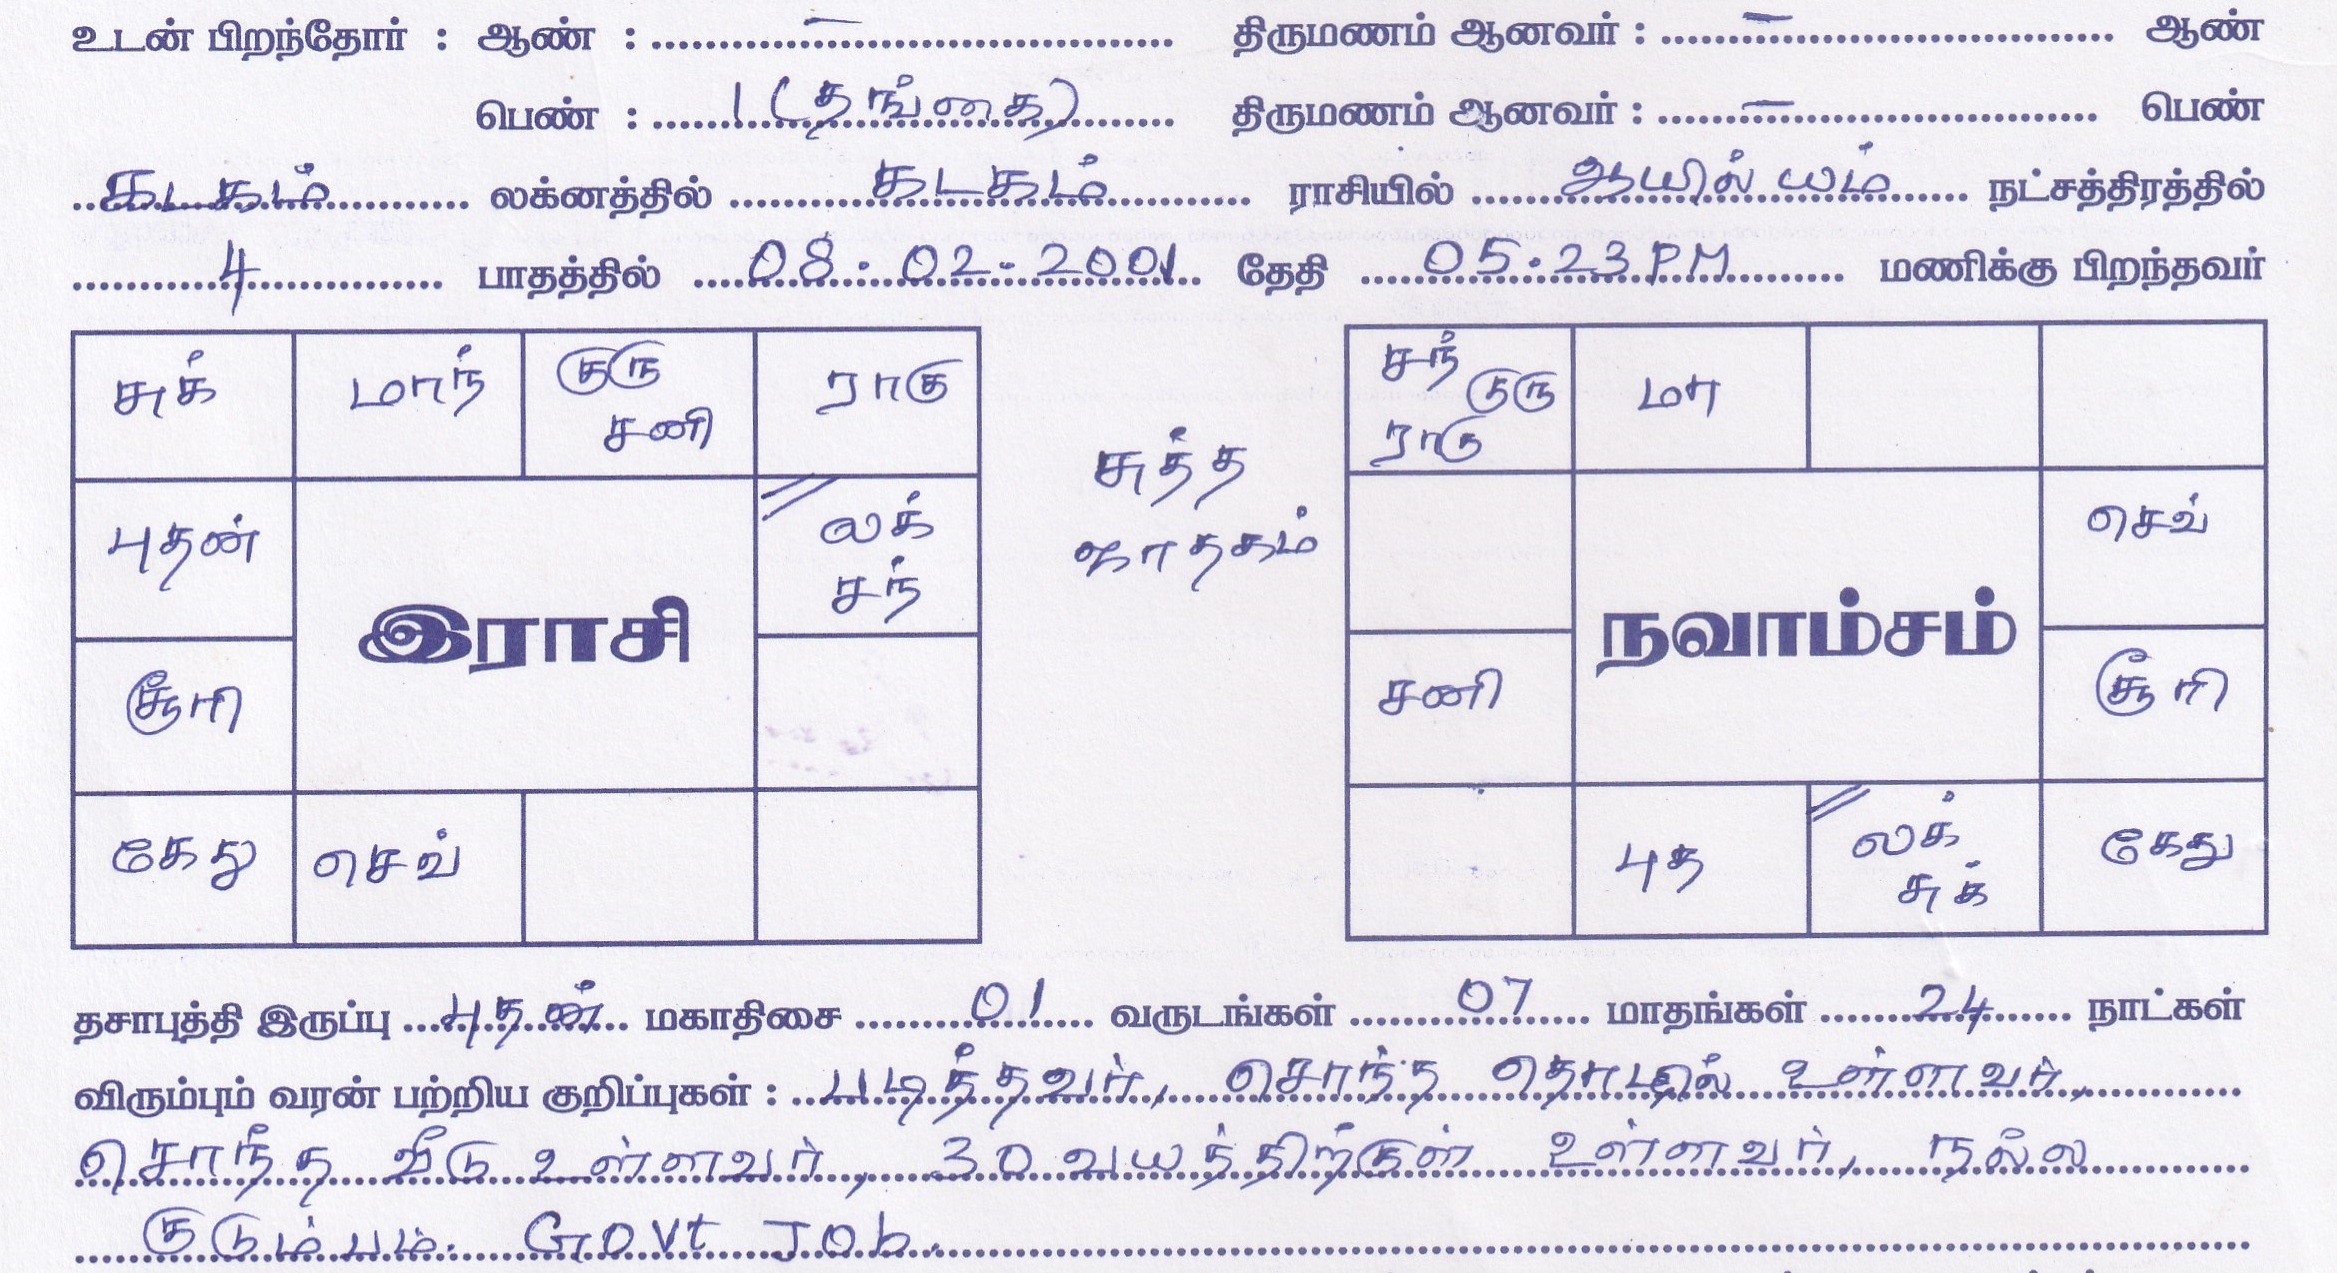 உடன் பிறந்தோர் : ஆண் : – திருமணம் ஆனவர் : – ஆண்
பெண் : 1 (தங்கை) திருமணம் ஆனவர் : – பெண்
கடகம் லக்னத்தில் கடகம் ராசியில் ஆயில்யம் நட்சத்திரத்தில்
4 பாதத்தில் 08-02-2001 தேதி 05.23PM மணிக்கு பிறந்தவர்
சுக் மாந் குரு சனி ராகு
புதன் லக் சந்
இராசி
சூரி
கேது செவ்
சுத்த
ஜாதகம்
சந் குரு ராகு மா
செவ்
நவாம்சம்
சனி சூரி
புத லக் சுக் கேது
தசாபுத்தி இருப்பு புதன் மகாதிசை 01 வருடங்கள் 07 மாதங்கள் 24 நாட்கள்
விரும்பும் வரன் பற்றிய குறிப்புகள் : படித்தவர், சொந்த தொழில் உள்ளவர்,
சொந்த வீடு உள்ளவர், 30 வயத்திற்குள் உள்ளவர், நல்ல
குடும்பம். Govt Job.